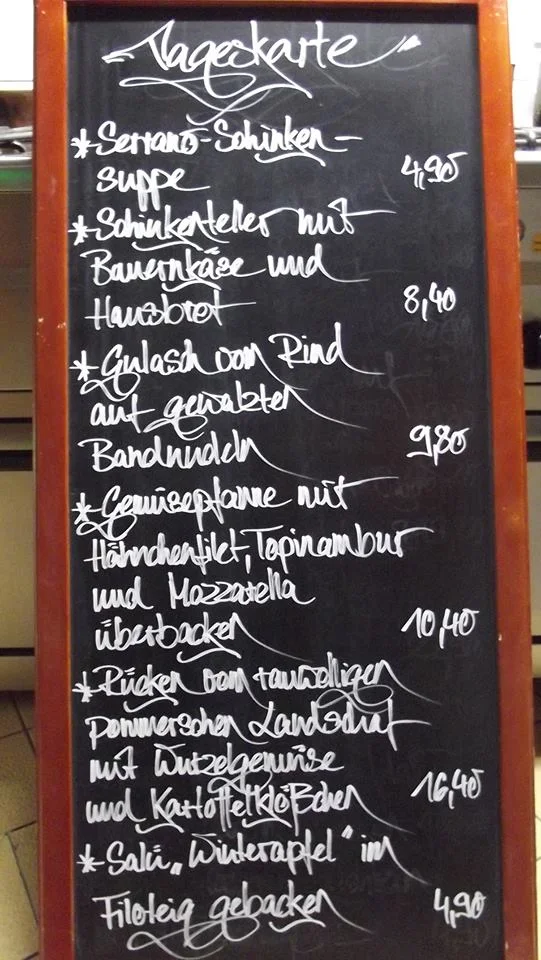 Tageskarte
* Serrano-Schinken-
suppe 4,90
* Schinkenteller mit
Bauernkäse und
Hausbrot 8,40
* Gulasch vom Rind
auf gewalzten
Bandnudeln 9,80
* Gemüsepfanne mit
Hähnchenfilet, Topinambur
und Mozzarella
überbacken 10,40
* Rücken vom rauwolligen
pommerschen Landschaf
mit Wurzelgemüse
und Kartoffelklößchen 16,40
* „Winterapfel“ im
Filoteig gebacken 4,90